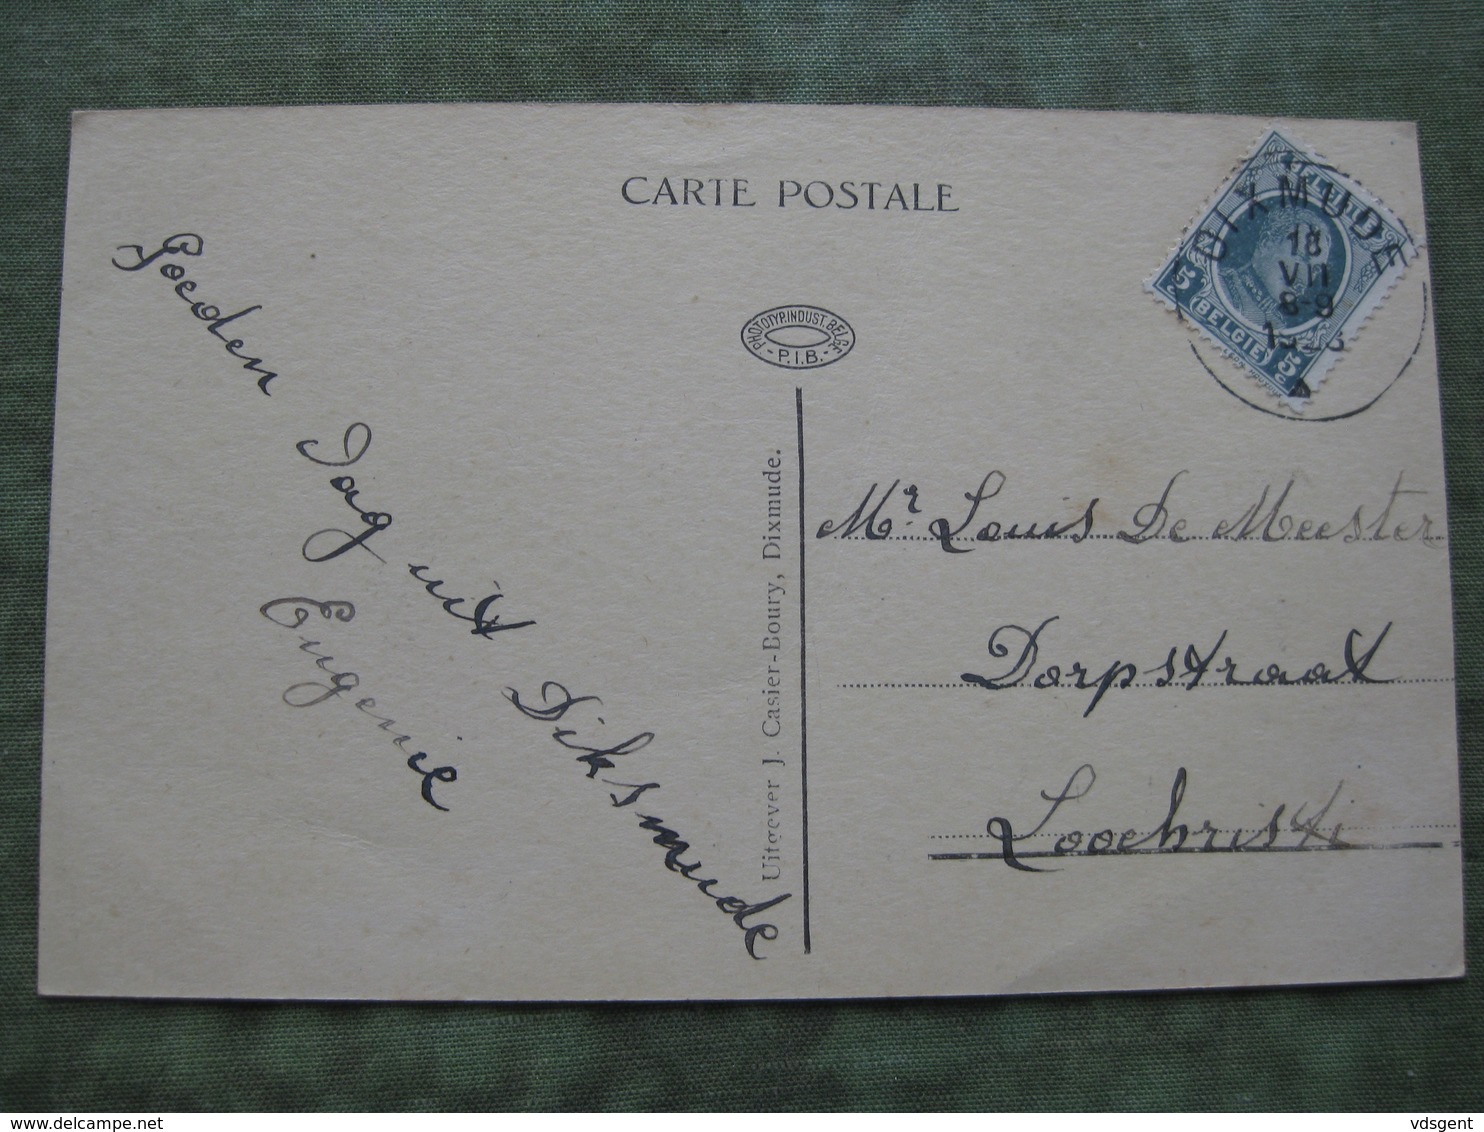 CARTE POSTALE
DIXMUDE
18
VII
8-9
BELGIE
5
5
PHOTOTYP. INDUST. BELGE
- P.I.B. -
Goeden Dag uit Diksmude
Eugenie
Uitgever J. Casier-Boury, Dixmude.
Mr. Louis De Meester
Dorpstraat
Loochristi
vdsgent